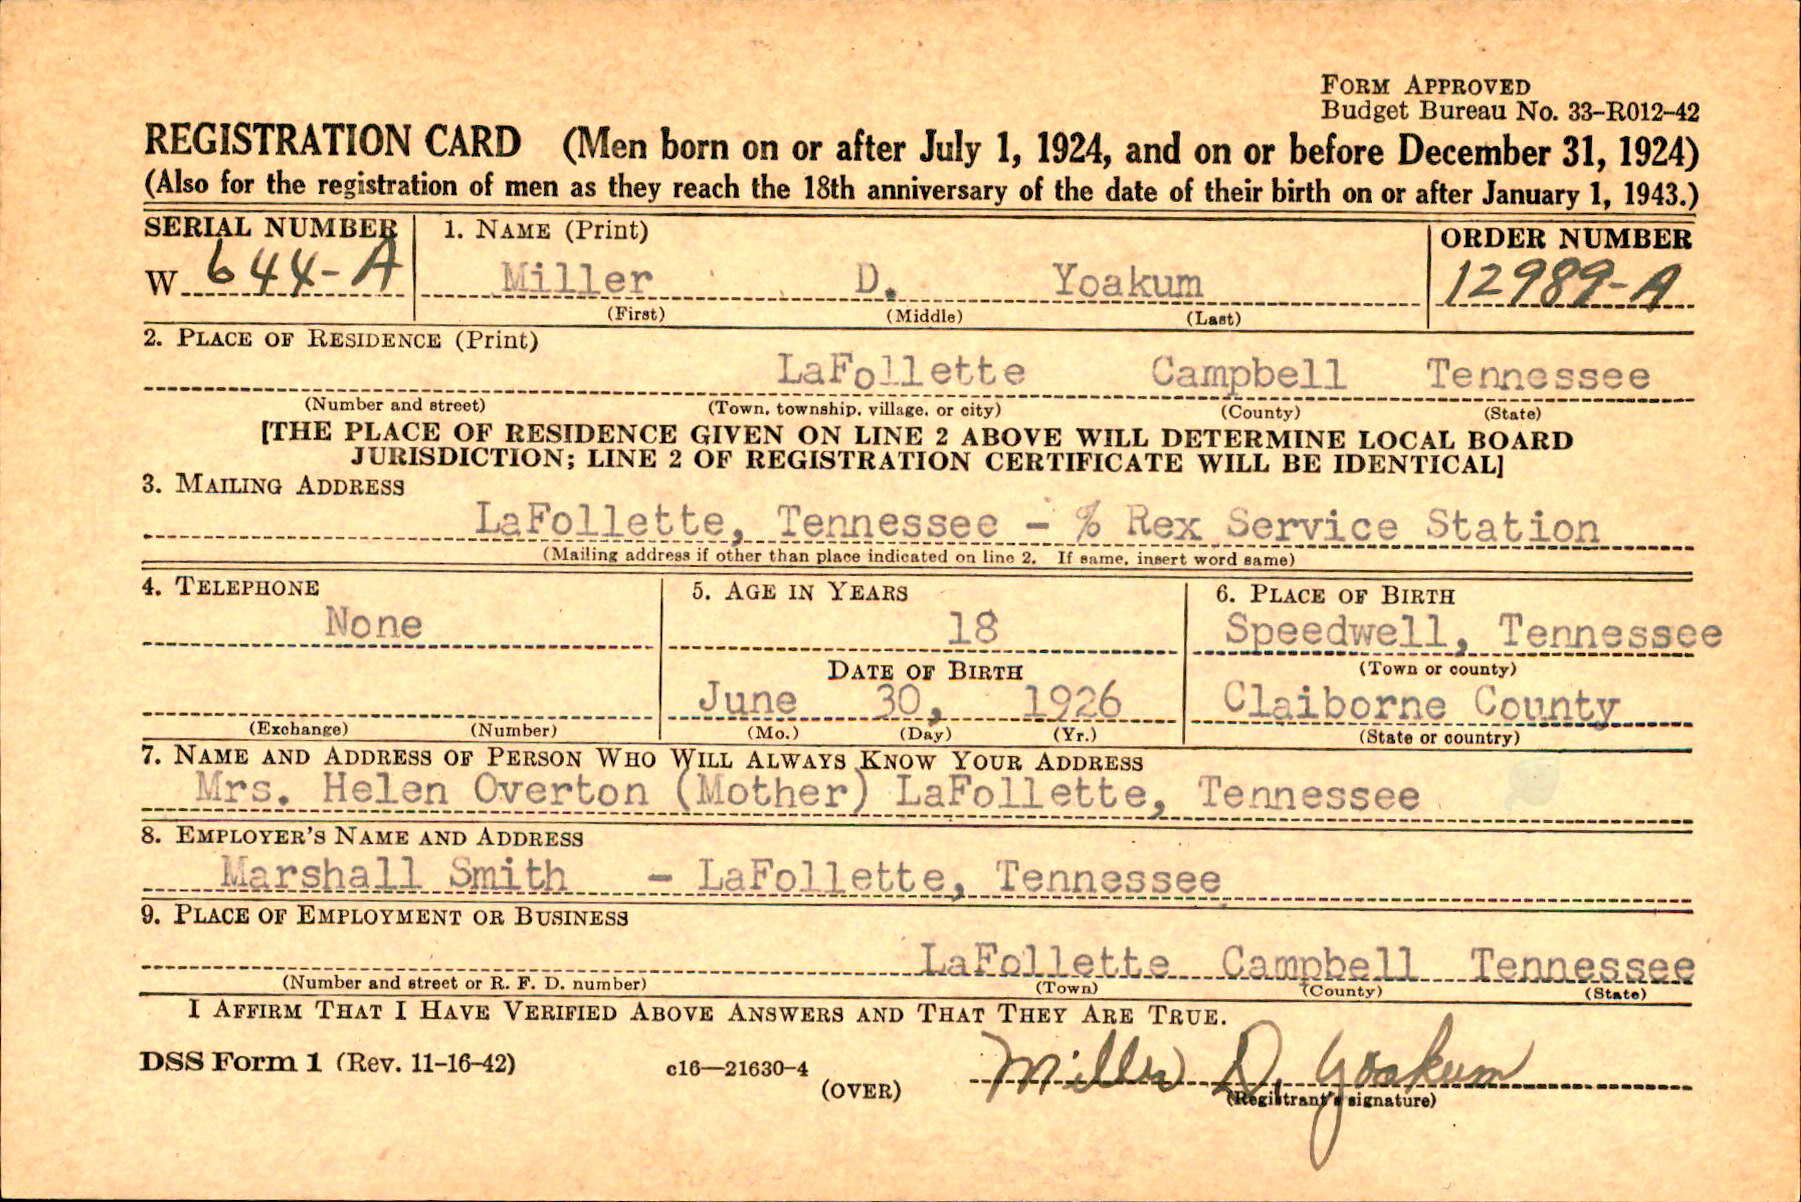 FORM APPROVED
Budget Bureau No. 33-R012-42
REGISTRATION CARD (Men born on or after July 1, 1924, and on or before December 31, 1924)
(Also for the registration of men as they reach the 18th anniversary of the date of their birth on or after January 1, 1943.)
SERIAL NUMBER 1. NAME (Print) ORDER NUMBER
W 644-A Miller D. Yoakum 12989-A
(First) (Middle) (Last)
2. PLACE OF RESIDENCE (Print)
LaFollette Campbell Tennessee
(Number and street) (Town, township, village, or city) (County) (State)
[THE PLACE OF RESIDENCE GIVEN ON LINE 2 ABOVE WILL DETERMINE LOCAL BOARD
JURISDICTION; LINE 2 OF REGISTRATION CERTIFICATE WILL BE IDENTICAL]
3. MAILING ADDRESS
LaFollette, Tennessee - % Rex Service Station
(Mailing address if other than place indicated on line 2. If same, insert word same)
4. TELEPHONE 5. AGE IN YEARS 6. PLACE OF BIRTH
None 18 Speedwell, Tennessee
DATE OF BIRTH (Town or county)
June 30, 1926 Claiborne County
(Exchange) (Number) (Mo.) (Day) (Yr.) (State or country)
7. NAME AND ADDRESS OF PERSON WHO WILL ALWAYS KNOW YOUR ADDRESS
Mrs. Helen Overton (Mother) LaFollette, Tennessee
8. EMPLOYER'S NAME AND ADDRESS
Marshall Smith - LaFollette, Tennessee
9. PLACE OF EMPLOYMENT OR BUSINESS
LaFollette Campbell Tennessee
(Number and street or R. F. D. number) (Town) (County) (State)
I AFFIRM THAT I HAVE VERIFIED ABOVE ANSWERS AND THAT THEY ARE TRUE.
DSS Form 1 (Rev. 11-16-42) c16—21630-4 Miller D. Yoakum
(OVER) (Registrant's signature)